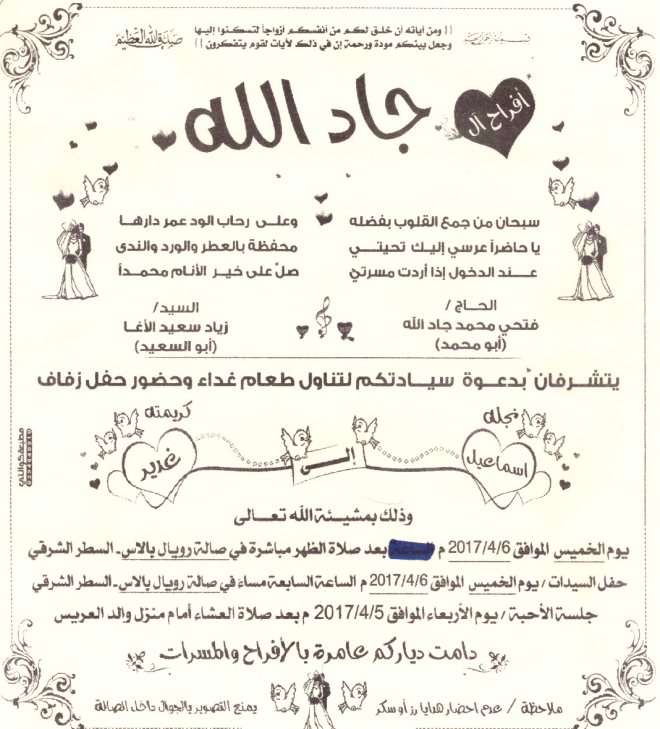 بسم الله الرحمن الرحيم
{{ ومن آياته أن خلق لكم من أنفسكم أزواجاً لتسكنوا إليها
وجعل بينكم مودة ورحمة إن في ذلك لآيات لقوم يتفكرون }}
صدق الله العظيم
أفراح آل
جاد الله
سبحان من جمع القلوب بفضله وعلى رحاب الود عمر دارها
يا حاضراً عرسي إليك تحيتي محفظة بالعطر والورد والندى
عند الدخول إذا أردت مسرتي صلّ على خير الأنام محمداً
الحاج / السيد/
فتحي محمد جاد الله زياد سعيد الأغا
(أبو محمد) (أبو السعيد)
يتشرفان بدعوة سيادتكم لتناول طعام غداء وحضور حفل زفاف
نجله كريمته
اسماعيل إلى غدير
وذلك بمشيئة الله تعالى
يوم الخميس الموافق 2017/4/6 م الساعة بعد صلاة الظهر مباشرة في صالة رويال بالاس - السطر الشرقي
حفل السيدات / يوم الخميس الموافق 2017/4/6 م الساعة السابعة مساءً في صالة رويال بالاس - السطر الشرقي
جلسة الأحبة / يوم الأربعاء الموافق 2017/4/5 م بعد صلاة العشاء أمام منزل والد العريس
دامت دياركم عامرة بالأفراح والمسرات
ملاحظة / عدم احضار هدايا رز أو سكر يمنع التصوير بالجوال داخل الصالة